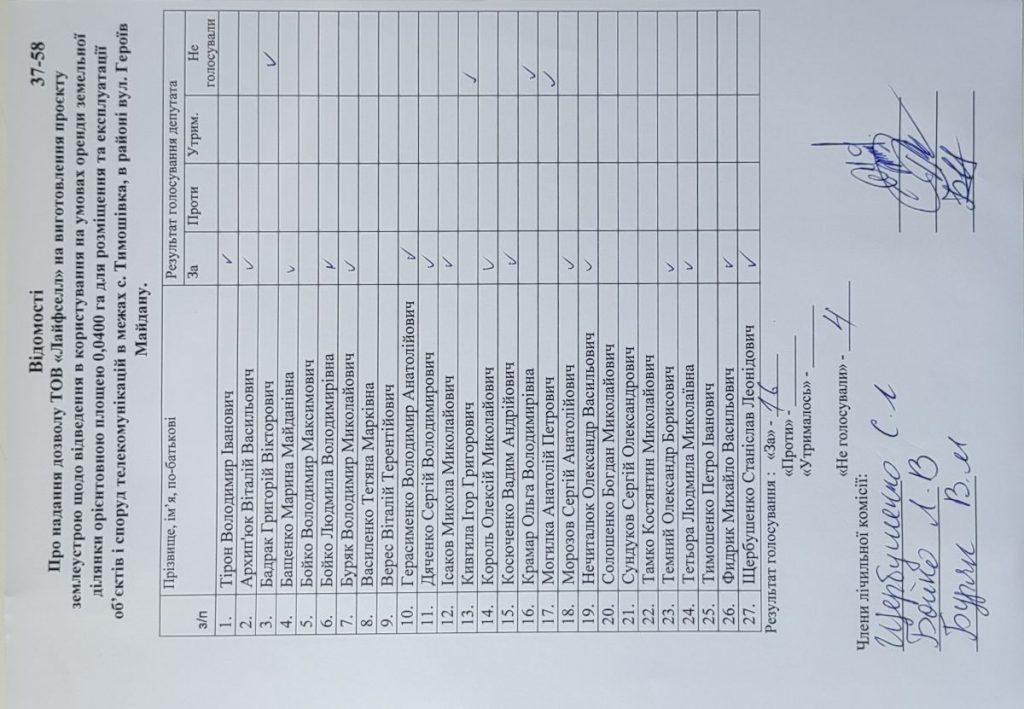 Відомості 37-58
Про надання дозволу ТОВ «Лайфселл» на виготовлення проєкту
землеустрою щодо відведення в користування на умовах оренди земельної
ділянки орієнтовною площею 0,0400 га для розміщення та експлуатації
об’єктів і споруд телекомунікацій в межах с. Тимошівка, в районі вул. Героїв
Майдану.
з/п Прізвище, ім’я, по-батькові Результат голосування депутата
За Проти Утрим. Не голосували
1. Тірон Володимир Іванович ✓
2. Архип'юк Віталій Васильович ✓
3. Бадрак Григорій Вікторович ✓
4. Бащенко Марина Майданівна ✓
5. Бойко Володимир Максимович
6. Бойко Людмила Володимирівна ✓
7. Буряк Володимир Миколайович ✓
8. Василенко Тетяна Марківна
9. Верес Віталій Терентійович
10. Герасименко Володимир Анатолійович ✓
11. Дяченко Сергій Володимирович ✓
12. Ісаков Микола Миколайович ✓
13. Кивгила Ігор Григорович ✓
14. Король Олексій Миколайович ✓
15. Косюченко Вадим Андрійович ✓
16. Крамар Ольга Володимирівна ✓
17. Могилка Анатолій Петрович ✓
18. Морозов Сергій Анатолійович ✓
19. Нечиталюк Олександр Васильович ✓
20. Солошенко Богдан Миколайович
21. Сундуков Сергій Олександрович
22. Тамко Костянтин Миколайович
23. Темний Олександр Борисович ✓
24. Тетьора Людмила Миколаївна ✓
25. Тимошенко Петро Іванович
26. Фидрик Михайло Васильович ✓
27. Щербушенко Станіслав Леонідович ✓
Результат голосування : «За» - 16
«Проти» -
«Утрималось» -
«Не голосували» - 4
Члени лічильної комісії:
Щербушенко С.Л
Бойко Л.В
Буряк В.М